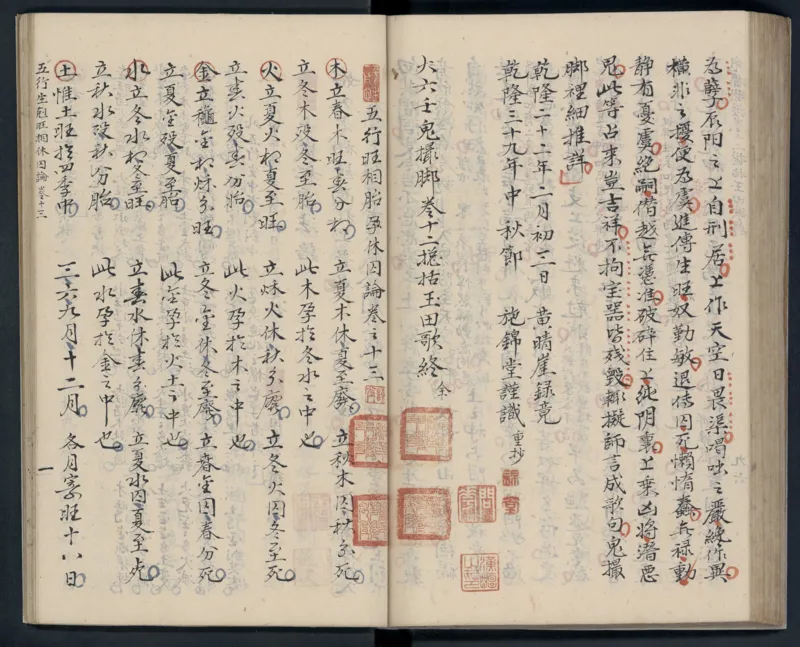 為孽辰陽之上自刑居上作天空日畏渠喝叱之嚴絶作異
橫非之擾便為虞進傳生旺奴勤敏退傳囚死懶惰蠢兵祿動
静有憂虞絶嗣借越兵憑准破碎住上純阴裏上乘凶将潜惡
鬼此等占来豈吉祥不拘室器皆残毀輙擬師言成歌句鬼撮
脚裡細推詳
乾隆二十二年二月初三日 黄晴崖録竟
乾隆三十九年中秋節 施錦堂謹識重抄
大六壬鬼撮脚卷十二捴括玉田歌終
五行旺相胎孕休囚論卷之十三
木立春木旺春分相 立夏木休夏至廢 立秋木囚秋分死
立冬木殁冬至胎 此木孕於冬水之中也
火立夏火相夏至旺 立秋火休秋分廢 立冬火囚冬至死
立春火殁春分胎 此火孕於木之中也
金立秋金相秋分旺 立冬金休冬至廢 立春金囚春分死
立夏金殁夏至胎 此金孕於火土之中也
水立冬水相冬至旺 立春水休春分廢 立夏水囚夏至死
立秋水殁秋分胎 此水孕於金之中也
土惟土旺於四季中 三六九月十二月 各月寄旺十八日
五行生尅旺相休囚論卷十三
一